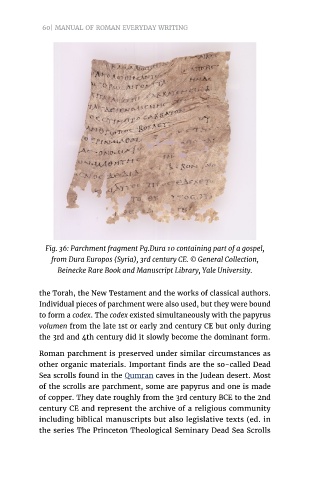 60| MANUAL OF ROMAN EVERYDAY WRITING
Fig. 36: Parchment fragment Pg.Dura 10 containing part of a gospel,
from Dura Europos (Syria), 3rd century CE. © General Collection,
Beinecke Rare Book and Manuscript Library, Yale University.
the Torah, the New Testament and the works of classical authors.
Individual pieces of parchment were also used, but they were bound
to form a codex. The codex existed simultaneously with the papyrus
volumen from the late 1st or early 2nd century CE but only during
the 3rd and 4th century did it slowly become the dominant form.
Roman parchment is preserved under similar circumstances as
other organic materials. Important finds are the so-called Dead
Sea scrolls found in the Qumran caves in the Judean desert. Most
of the scrolls are parchment, some are papyrus and one is made
of copper. They date roughly from the 3rd century BCE to the 2nd
century CE and represent the archive of a religious community
including biblical manuscripts but also legislative texts (ed. in
the series The Princeton Theological Seminary Dead Sea Scrolls